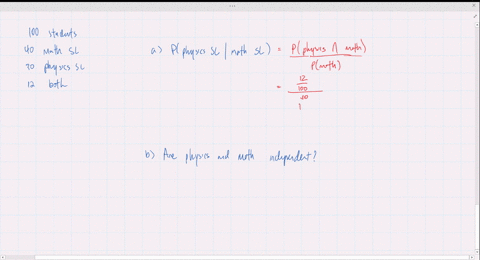 100 students
40 math SL
30 physics SL
12 both
a) P(physics SL | math SL) = P(physics ∩ math)
P(math)
= 12
100
b) Are physics and math independent?